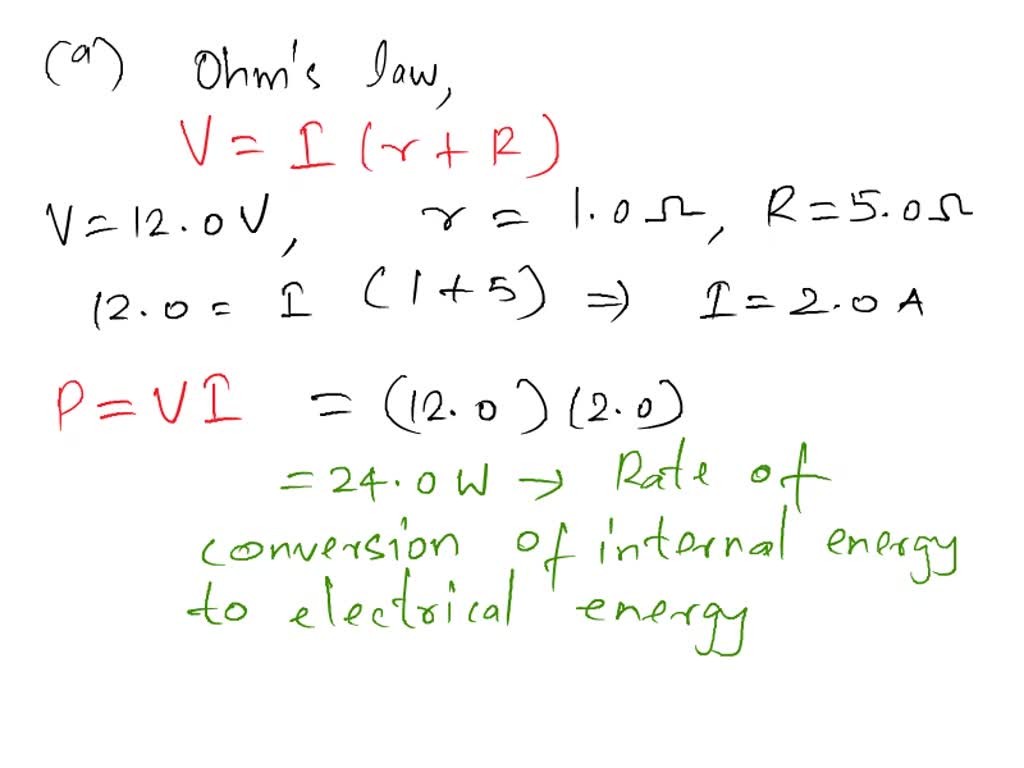 (a) Ohm's law,
V = I (r + R)
V = 12.0 V, r = 1.0 Ω, R = 5.0 Ω
12.0 = I (1 + 5) ⇒ I = 2.0 A
P = VI = (12.0) (2.0)
= 24.0 W → Rate of
conversion of internal energy
to electrical energy